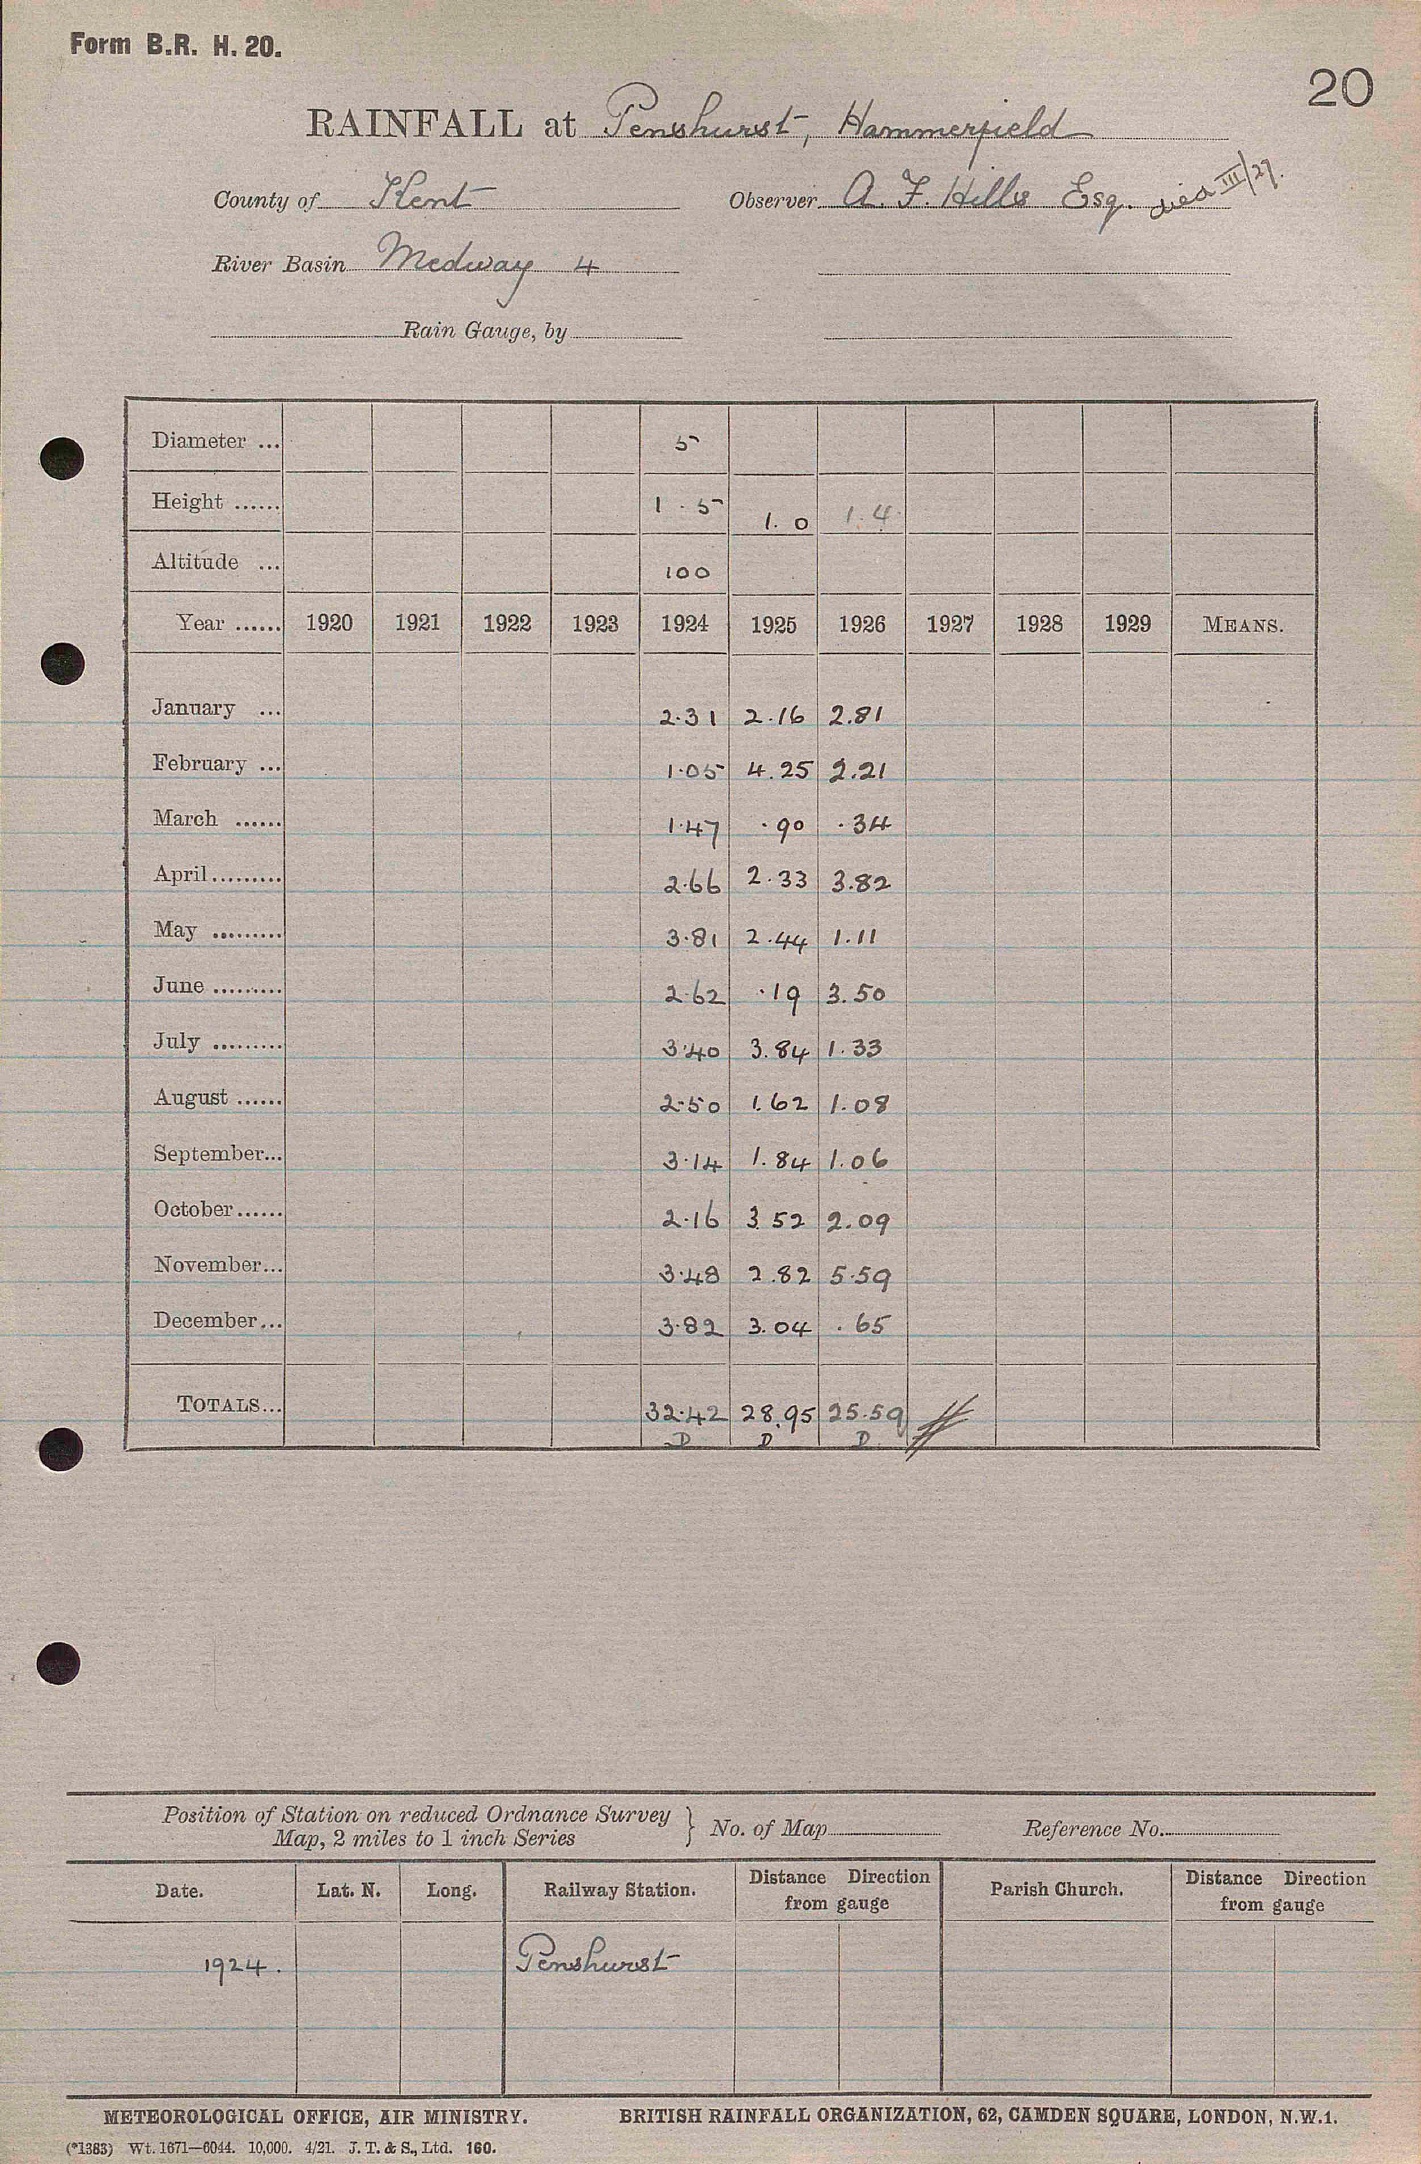 Form B.R. H. 20.
20
RAINFALL at Penshurst, Hammerfield
County of Kent Observer A. F. Hills Esq. died III/27.
River Basin Medway 4
Rain Gauge, by
Diameter ... 5
Height ...... 1.5 1.0 1.4
Altitude ... 100
Year ...... 1920 1921 1922 1923 1924 1925 1926 1927 1928 1929 MEANS.
January ... 2.31 2.16 2.81
February ... 1.05 4.25 2.21
March ...... 1.47 .90 .34
April ......... 2.66 2.33 3.82
May ......... 3.81 2.44 1.11
June ......... 2.62 .19 3.50
July ......... 3.40 3.84 1.33
August ...... 2.50 1.62 1.08
September... 3.14 1.84 1.06
October...... 2.16 3.52 2.09
November... 3.48 2.82 5.59
December... 3.82 3.04 .65
TOTALS... 32.42 28.95 25.59
D D D
Position of Station on reduced Ordnance Survey
Map, 2 miles to 1 inch Series } No. of Map Reference No.
Date. Lat. N. Long. Railway Station. Distance Direction from gauge Parish Church. Distance Direction from gauge
1924. Penshurst
METEOROLOGICAL OFFICE, AIR MINISTRY. BRITISH RAINFALL ORGANIZATION, 62, CAMDEN SQUARE, LONDON, N.W.1.
(*1383) Wt. 1671—6044. 10,000. 4/21. J. T. & S., Ltd. 160.